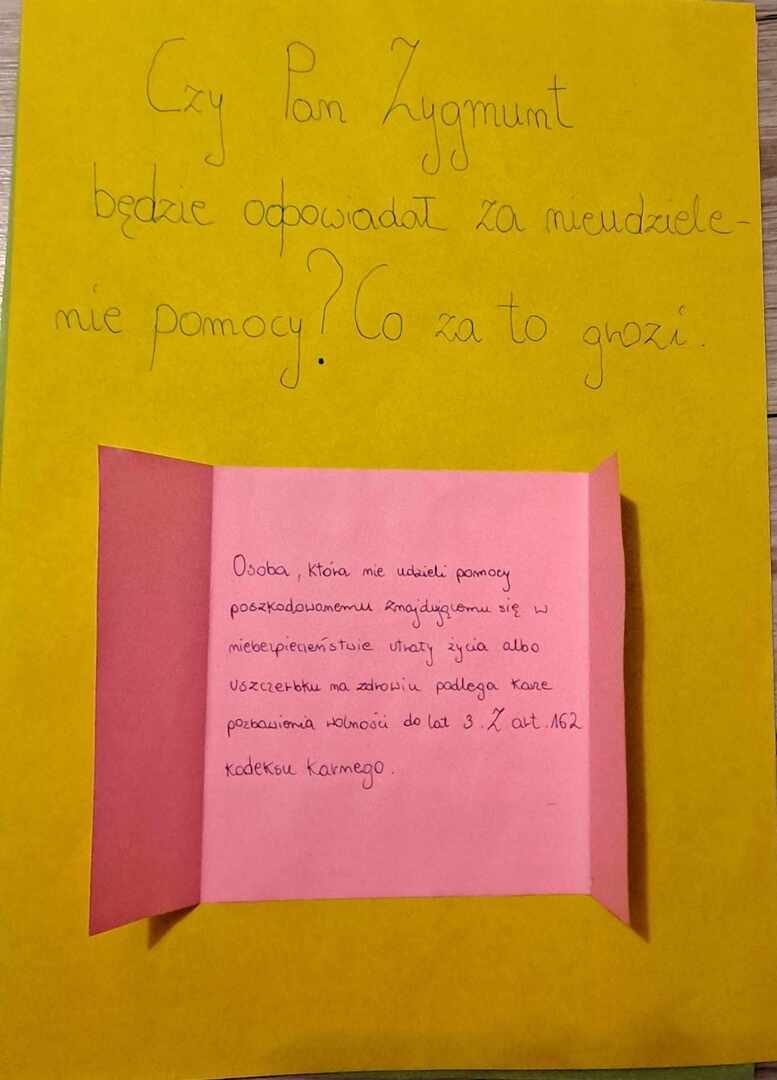 Czy Pan Zygmunt
będzie odpowiadał za nieudziele-
nie pomocy? Co za to grozi.
Osoba, która nie udzieli pomocy
poszkodowanemu znajdującemu się w
niebezpieczeństwie utraty życia albo
uszczerbku na zdrowiu podlega karze
pozbawienia wolności do lat 3. Z art. 162
kodeksu karnego.